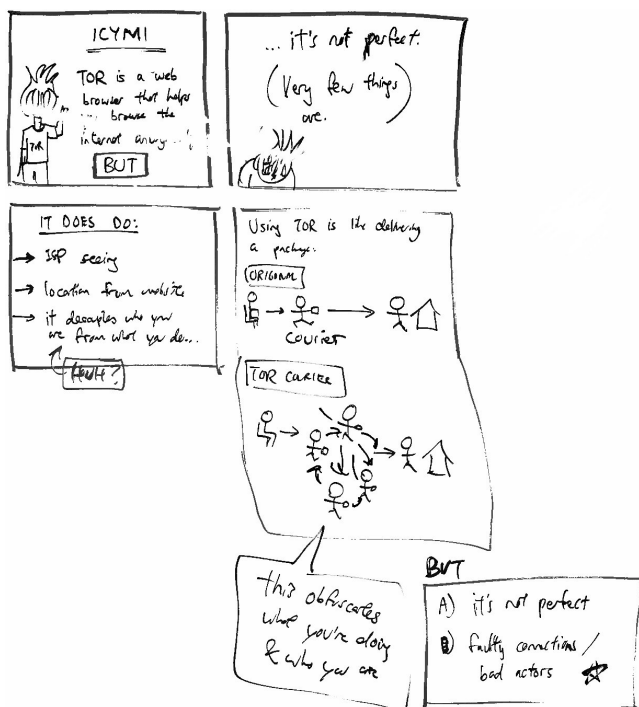 ICYMI
TOR is a web
browser that helps
browse the
internet anony...
TOR
BUT
...it's not perfect.
(Very few things
are.)
IT DOES DO:
→ ISP seeing
→ location from website
→ it decouples who you
are from what you do...
HUH?
Using TOR is like delivering
a package:
ORIGINAL
courier
TOR COURIER
this obfuscates
what you're doing
& who you are
BUT
A) it's not perfect
B) faulty connections /
bad actors